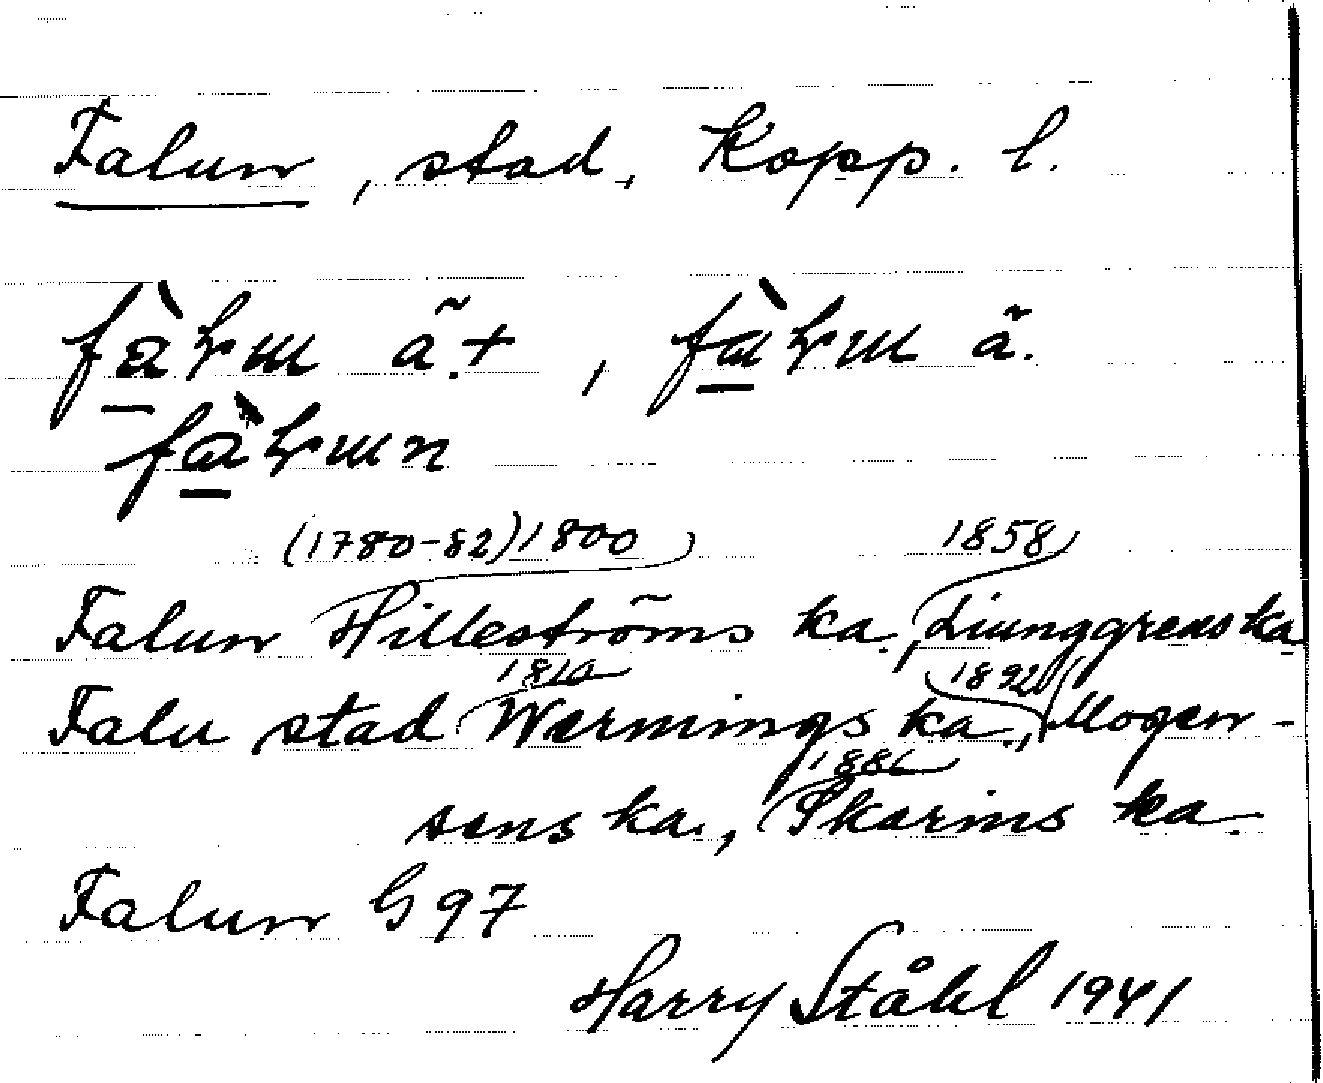 Falun, stad, Kopp. l.
(1780-82) 1800 1858
Falun Hilleströms ka., Liunggrens ka
1810 1892
Falu stad Wernings ka., Mogen-
1886
sens ka., Skarins ka.
Falun G 97
Harry Ståhl 1941